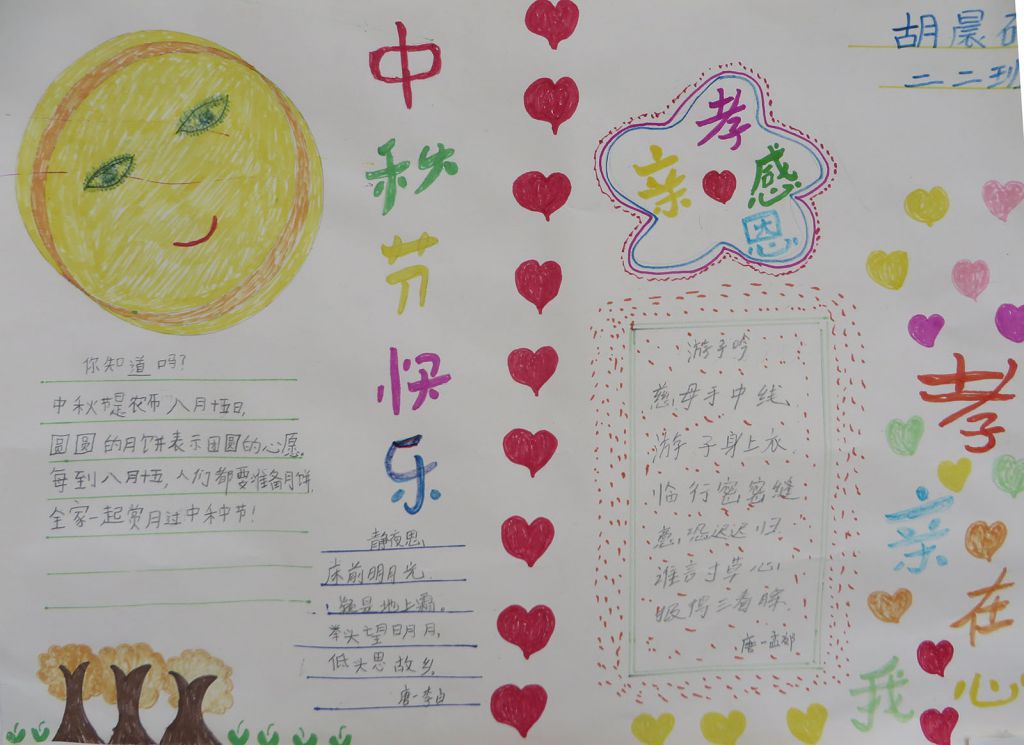 中秋节快乐
你知道吗?
中秋节是农历八月十五日,
圆圆的月饼表示团圆的心愿。
每到八月十五,人们都要准备月饼,
全家一起赏月过中秋节!
静夜思
床前明月光
疑是地上霜。
举头望明月,
低头思故乡。
唐-李白
胡晨
二二班
孝
亲感
恩
游子吟
慈母手中线
游子身上衣.
临行密密缝
意恐迟迟归
谁言寸草心
报得三春晖.
唐-孟郊
孝亲
在
我心